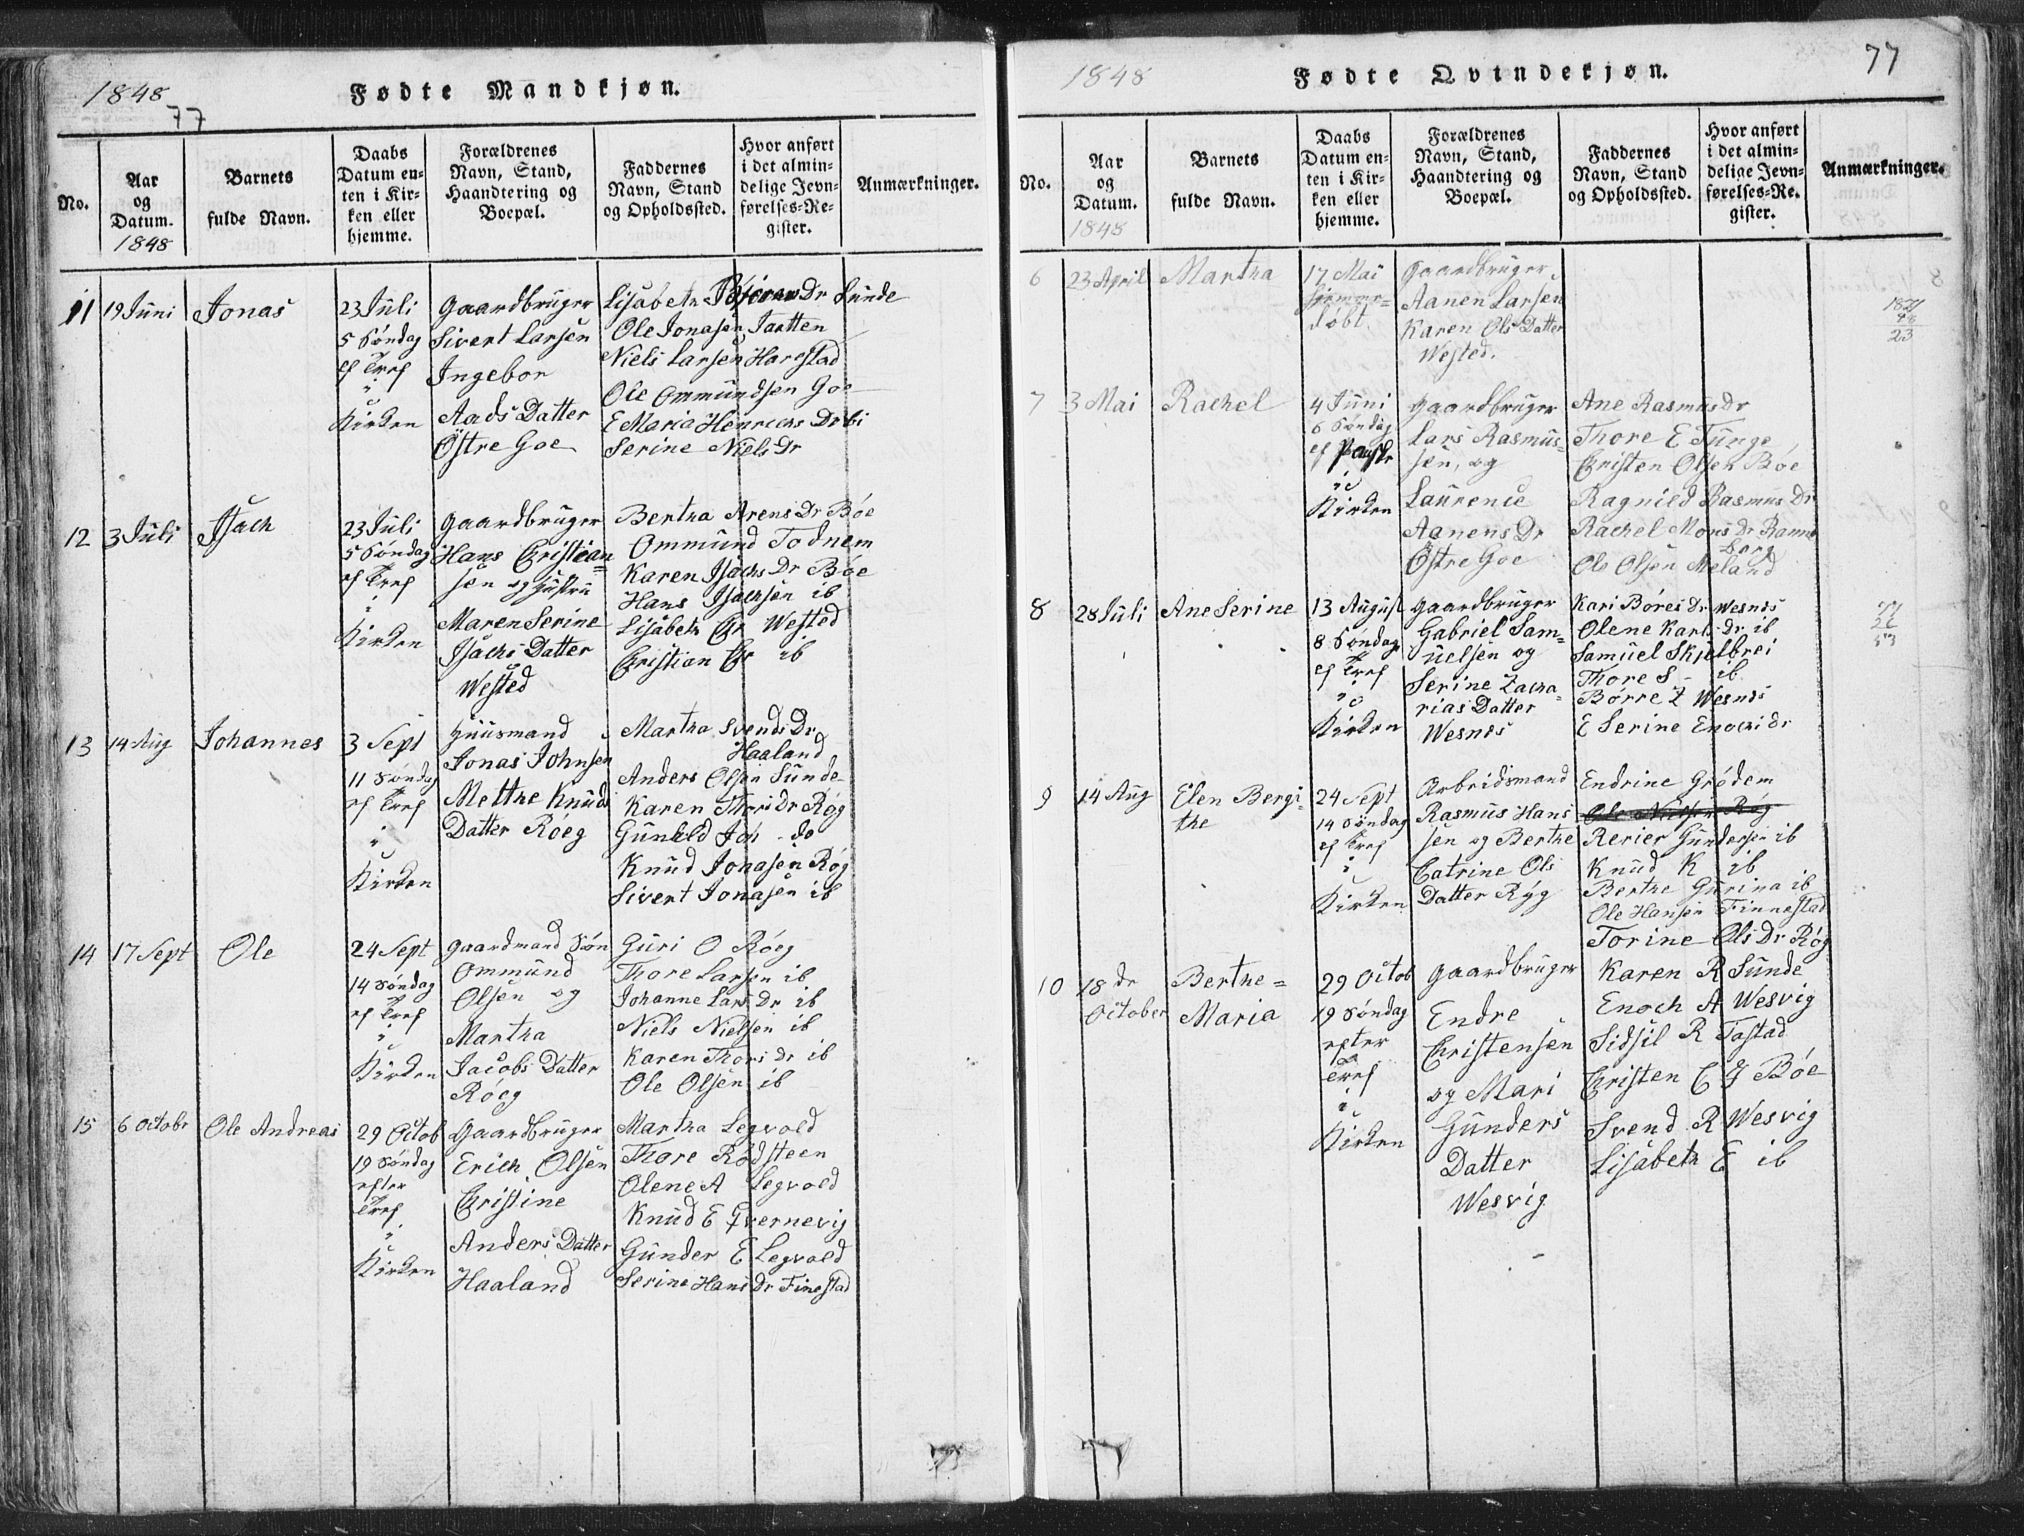 1848
77
Fødte Mandkjøn.
No.
Aar
og
Datum.
1848
Barnets
fulde Navn.
Daabs
Datum en-
ten i Kir-
ken eller
hjemme.
Forældrenes
Navn, Stand,
Haandtering og
Boepæl.
Faddernes
Navn, Stand
og Opholdssted.
Hvor anført
i det almin-
delige Jevn-
førelses-Re-
gister.
Anmærkninger.
11
19 Juni
Jonas
23 Juli
5 Søndag
ef Tref
i
Kirken
Gaardbruger
Sivert Larsen
Ingebor
Aads Datter
Østre Goe
Lisabeth Dr Sunde
Ole Jonasen Tartten
Niels Larsen Harestad
Ole Ommundsen Goe
E Maria Henrichs Dr ibi
Serine Niels Dr
12
3 Juli
Isach
23 Juli
5 Søndag
ef Tref
i
Kirken
Gaardbruger
Hans Christian=
sen og Hustru
Maren Serine
Isachs Datter
Wested
Bertha Arens Dr Bøe
Ommund Todnem
Karen Isachs Dr Bøe
Hans Isachsen ib
Lisabeth Chr Wested
Christian Chr ib
13
14 Aug
Johannes
3 Sept
11 Søndag
ef Tref
i
Kirken
Huusmand
Jonas Johnsen
Metthe Knuds
Datter Røeg
Martha Svends Dr
Haaland
Anders Olsen Sunde
Karen Thors Dr Røg
Gunild Joh - do
Knud Jonasen Røg
Sivert Jonasen ib
14
17 Sept
Ole
24 Sept
14 Søndag
ef Tref
i
Kirken
Gaardmand Søn
Ommund
Olsen og
Martha
Jacobs Datter
Røeg
Guri O Røeg
Thore Larsen ib
Johanne Lars Dr ib
Niels Nielsen ib
Karen Thors dr ib
Ole Olsen ib
15
6 Octobr
Ole Andreas
29 Octob
19 Søndag
efter
Tref
i
Kirken
Gaardbruger
Erich Olsen
Christine
Anders Datter
Haaland
Martha Legvold
Thore Rødsteen
Olene A Legvold
Knud E Qvernevig
Gunder E Legvold
Serine Hans Dr Finestad
1848
Fødte Qvindekjøn.
77
No.
Aar
og
Datum.
1848
Barnets
fulde Navn.
Daabs
Datum en-
ten i Kir-
ken eller
hjemme.
Forældrenes
Navn, Stand,
Haandtering og
Boepæl.
Faddernes
Navn, Stand
og Opholdssted.
Hvor anført
i det almin-
delige Jevn-
førelses-Re-
gister.
Anmærkninger.
6
23 April
Martha
17 Mai
hjemme=
døbt
Gaardbruger
Aanen Larsen
Karen Ols Datter
Wested.
23
7
3 Mai
Rachel
4 Juni
6 Søndag
ef Paaske
i
Kirken
Gaardbruger
Lars Rasmus=
sen, og
Laurence
Aanens Dr
Østre Goe
Ane Rasmus Dr
Thore E Tunge
Christen Olsen Bøe
Ragnild Rasmus Dr
Rachel Mons Dr Ramns
berg
Ole Olsen Meland
8
28 Juli
Ane Serine
13 August
8 Søndag
ef Tref
i
Kirken
Gaardbruger
Gabriel Sam=
uelsen og
Serine Zacha=
rias Datter
Wesnes
Kari Børes Dr Wesnes
Olene Karls dr ib
Samuel Skjelbrei
Thore S - ib
Børre Z Wesnes
E Serine Enochs dr
9
14 Aug
Elen Bergi=
the
24 Sept
14 Søndag
ef Tref
i
Kirken
Arbeidsmand
Rasmus Hans
sen og Berthe
Catrine Ols
Datter Røg
Endrine Grødem
Reier Gundersen ib
Knud K ib
Berthe Gurina ib
Ole Hansen Finnestad
Torine Ols Dr Røg
10
18 de
October
Berthe=
Maria
29 Octob
19 Søndag
efter
Tref
i
Kirken
Gaardbruger
Endre
Christensen
og Mari
Gunders
Datter
Wesvig
Karen R Sunde
Enoch A Wesvig
Sidsil R Tastad
Christen C J Bøe
Svend R Wesvig
Lisabeth E ib